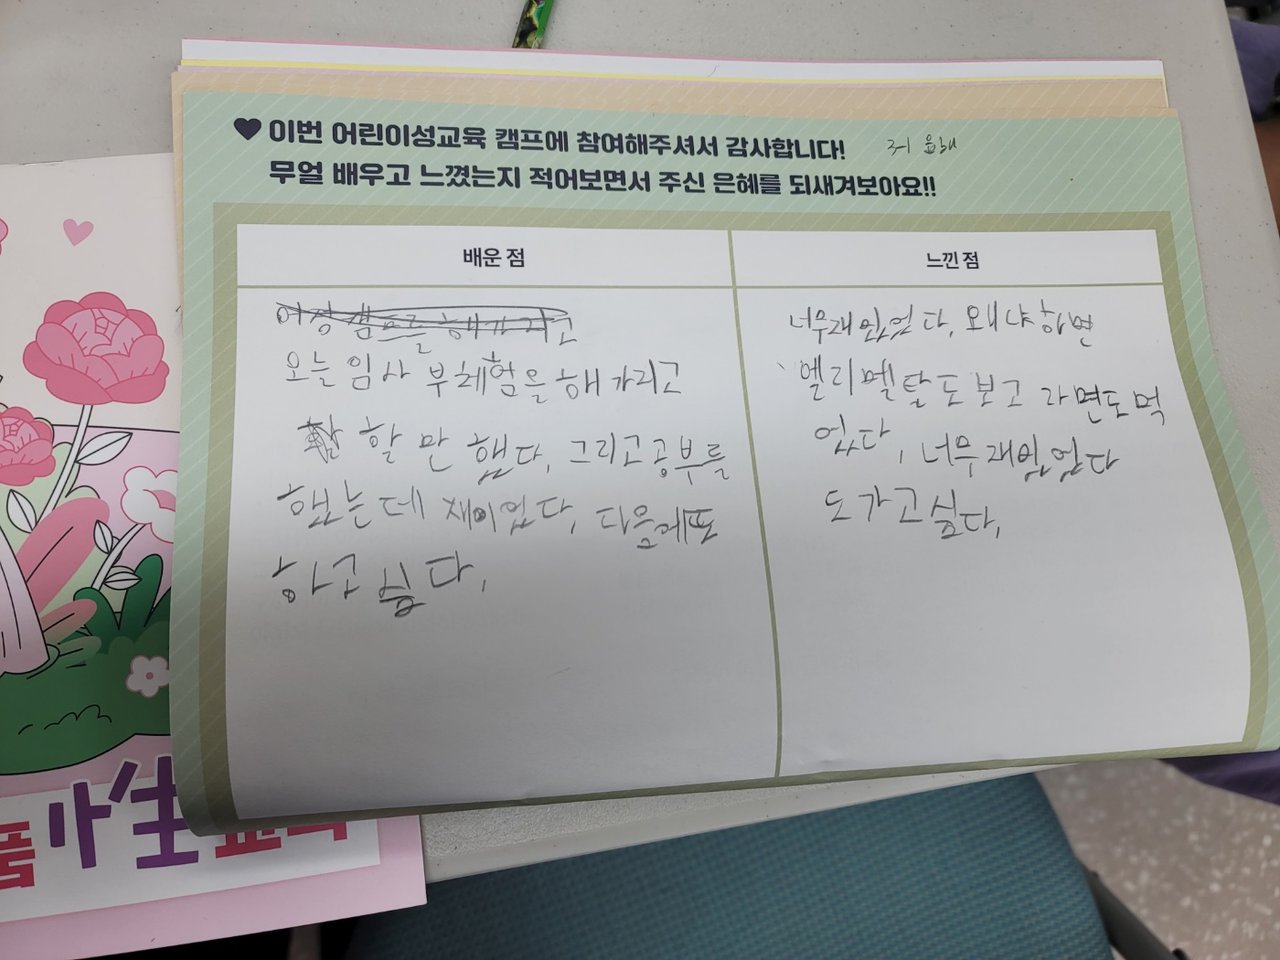 이번 어린이성교육 캠프에 참여해주셔서 감사합니다!
3-1 윤
무얼 배우고 느꼈는지 적어보면서 주신 은혜를 되새겨보아요!!
배운 점
오늘 임사 부체험을 해 가리고
할 만 했다, 그리고 공부를
했는데 재이었다, 다음에또
하고 싶다,
느낀 점
너무재있었다, 왜냐하면
엘리멜탈도보고 라면도먹
었다, 너무재있었다
도가고싶다,